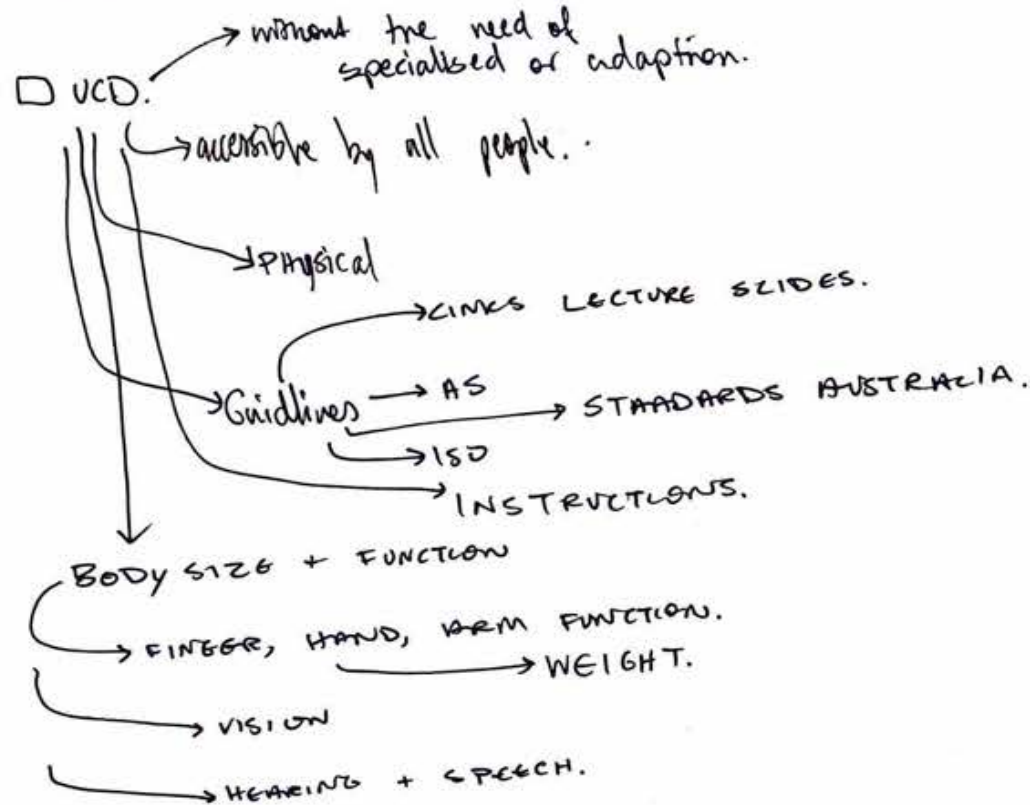 without the need of
specialised or adaption.
UCD.
accessible by all people..
Physical
LINKS LECTURE SLIDES.
Guidlines
AS
STANDARDS AUSTRALIA.
ISO
INSTRUCTIONS.
BODY SIZE + FUNCTION
FINGER, HAND, ARM FUNCTION.
WEIGHT.
VISION
HEARING + SPEECH.